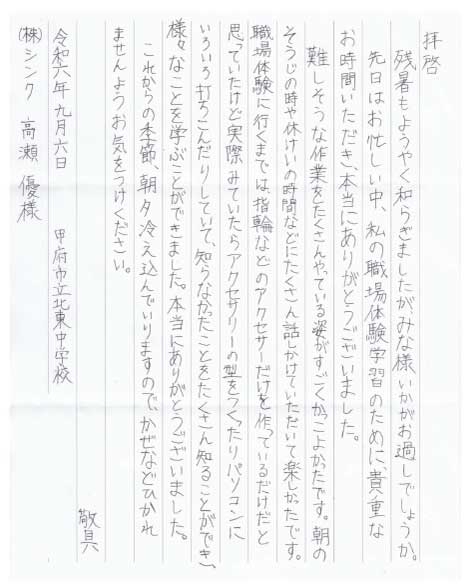 拝啓
残暑もようやく和らぎましたが、みな様いかがお過しでしょうか。
先日はお忙しい中、私の職場体験学習のために、貴重な
お時間いただき、本当にありがとうございました。
難しそうな作業をたくさんやっている姿がすごくかっこよかったです。朝の
そうじの時や休けいの時間などにたくさん話しかけていただいて楽しかったです。
職場体験に行くまでは、指輪などのアクセサーだけを作っているだけだと
思っていたけど実際みていたらアクセサリーの型をつくったりパソコンに
いろいろ打ちこんだりしていて、知らなかったことをたくさん知ることができ、
様々なことを学ぶことができました。本当にありがとうございました。
これからの季節、朝夕冷え込んでいりますので、かぜなどひかれ
ませんようお気をつけください。
敬具
令和六年九月六日
甲府市立北東中学校
(株)シンク 高瀬 優様